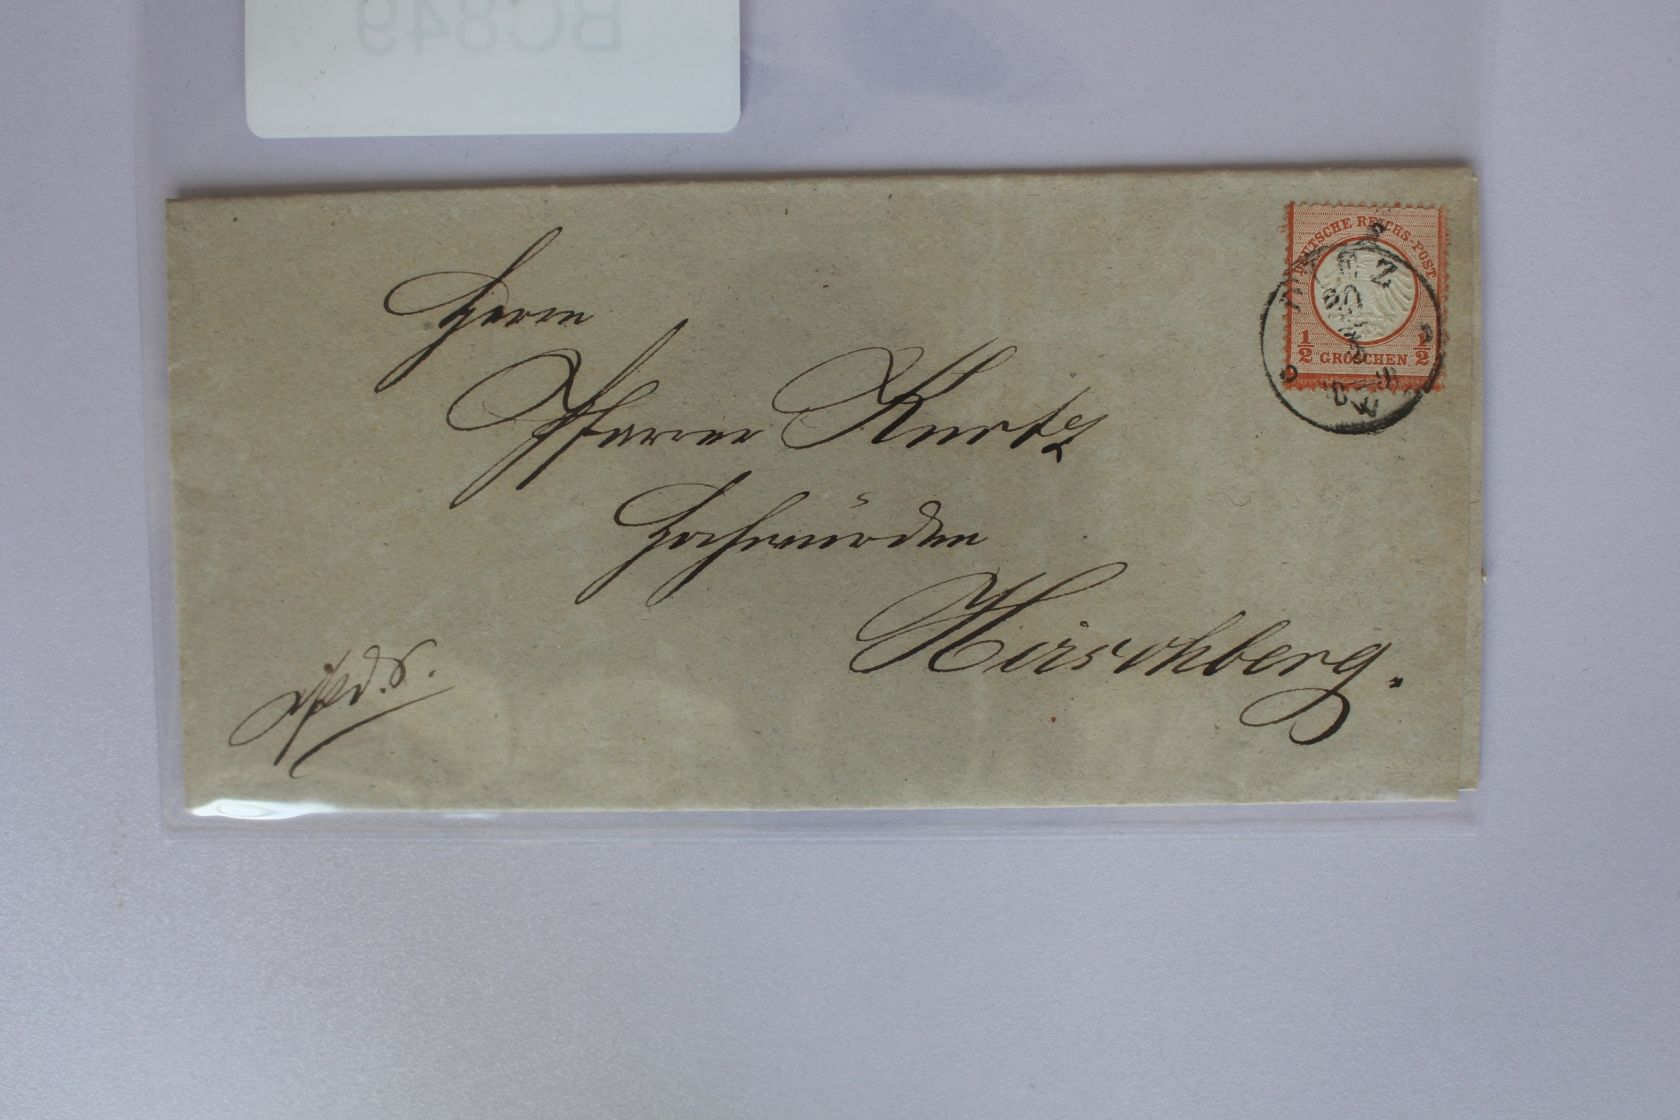 BC849
DEUTSCHE REICHS-POST
1/2 GROSCHEN 1/2
Herrn
Pfarrer Kurtz
Hochwürden
Hirschberg.